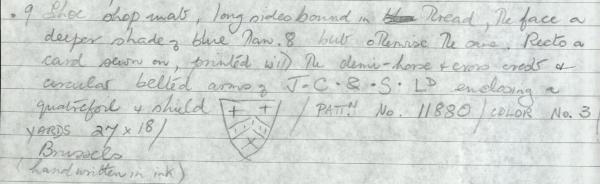 . 9 Shoe shop mat, long sides bound in thread, The face a
deeper shade of blue than . 8 but otherwise the same. Recto a
card sewn on, printed with the demi-horse + cross crest +
circular belted arms of J·C·&·S·LD enclosing a
quatrefoil + shield / PATN No. 11880 / COLOR No. 3
YARDS 27 x 18 /
Brussels
(handwritten in ink)